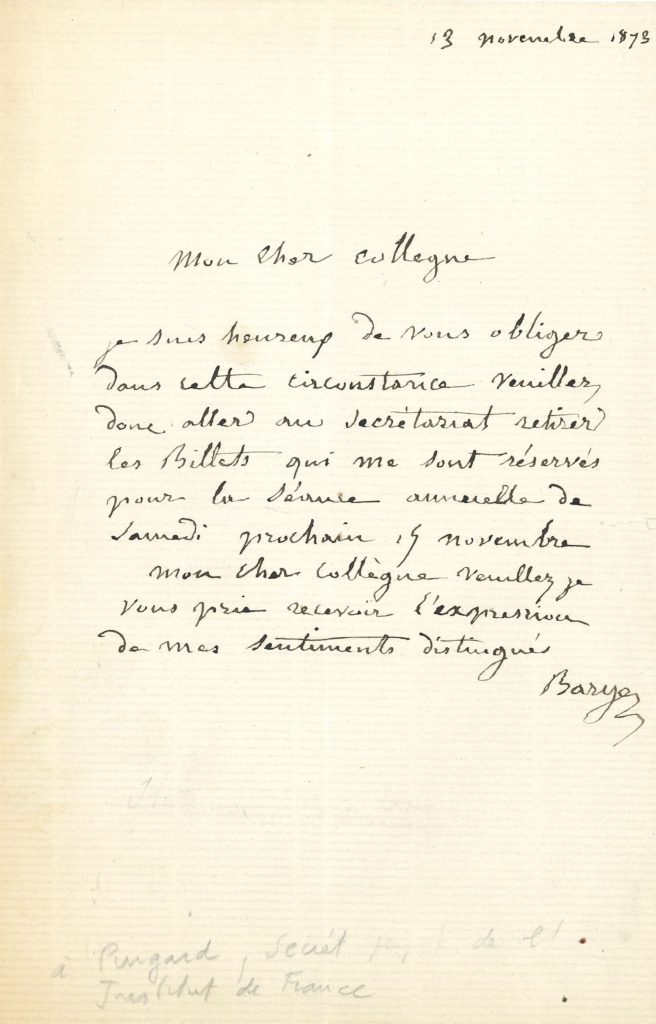 13 novembre 1873
Mon cher collegue
je suis heureux de vous obliger
dans cette circonstance veuillez
donc aller au secrétariat retirer
les Billets qui me sont réservés
pour la séance annuelle de
samedi prochain 15 novembre
mon cher collègue veuillez je
vous prie recevoir l'expression
de mes sentiments distingués
Barye
à Pingard, secrét de l'
Institut de France